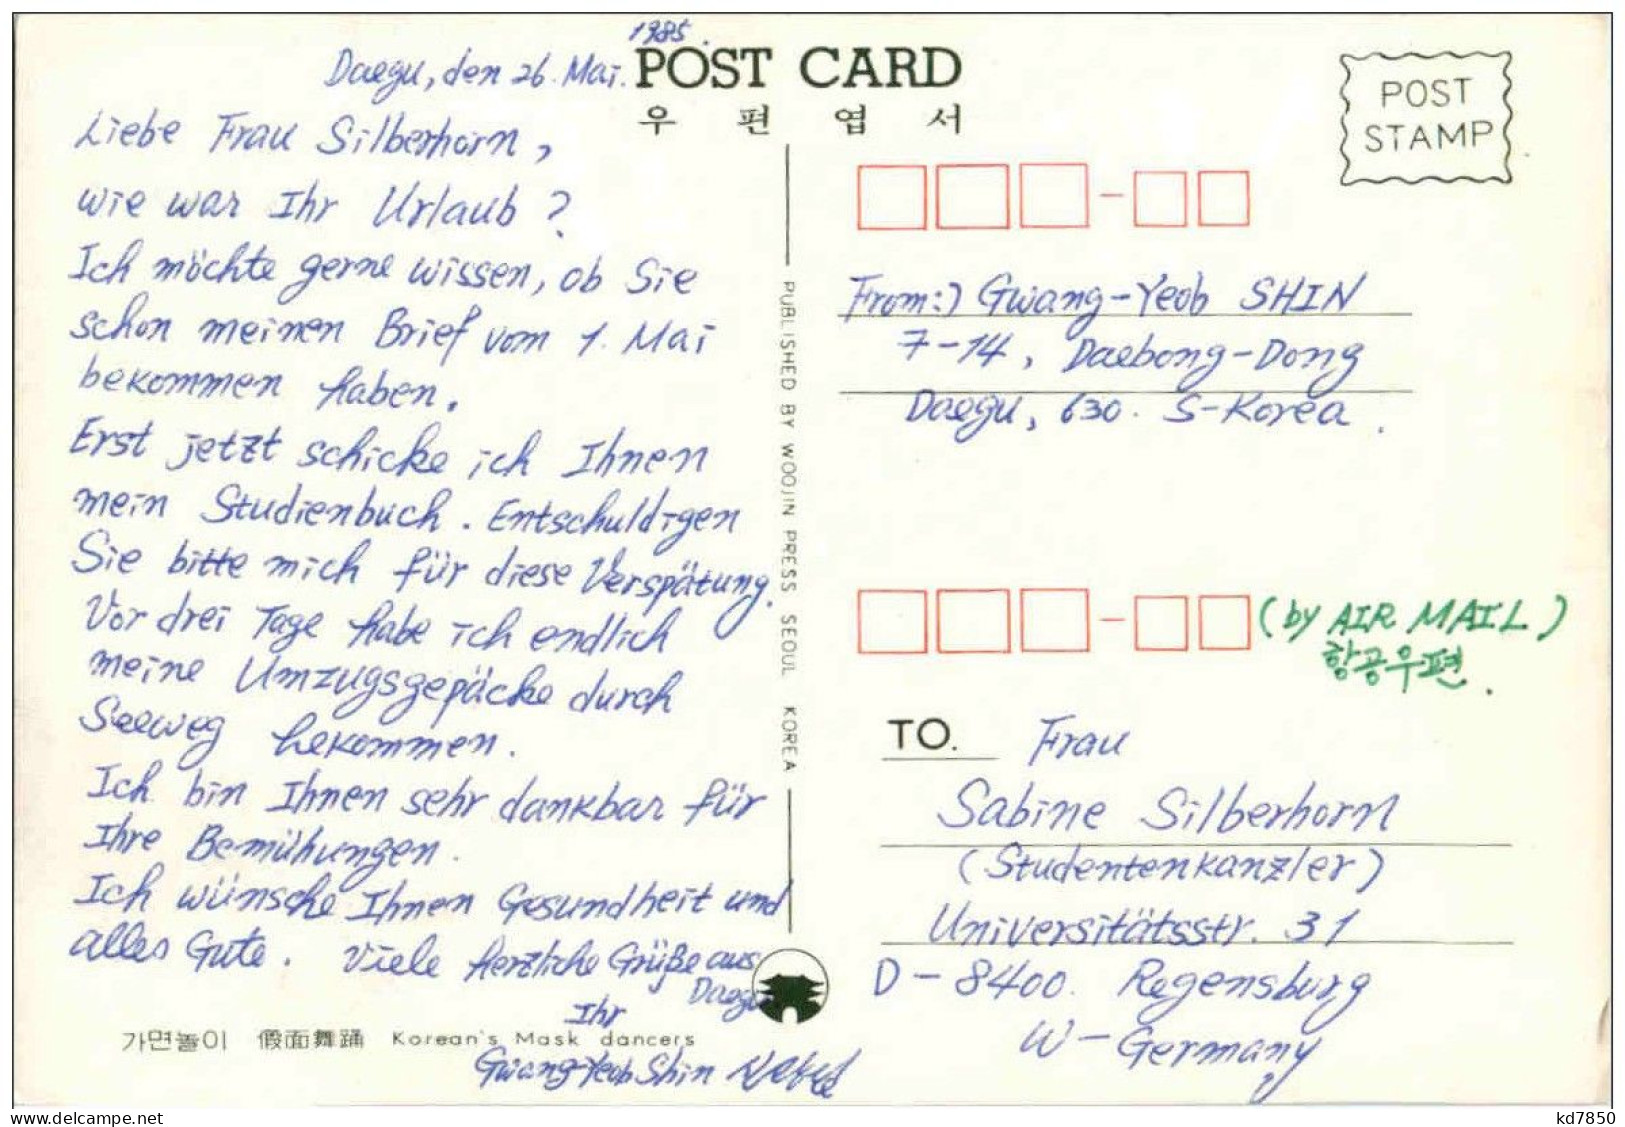 1985.
Daegu, den 26. Mai.
POST CARD
우 편 엽 서
POST
STAMP
Liebe Frau Silberhorn,
wie war Ihr Urlaub ?
Ich möchte gerne wissen, ob Sie
schon meinen Brief vom 1. Mai
bekommen haben.
Erst jetzt schicke ich Ihnen
mein Studienbuch. Entschuldigen
Sie bitte mich für diese Verspätung.
Vor drei Tage habe ich endlich
meine Umzugsgepäcke durch
Seeweg bekommen.
Ich bin Ihnen sehr dankbar für
Ihre Bemühungen.
Ich wünsche Ihnen Gesundheit und
alles Gute. Viele herzliche Grüße aus
Daegu
Ihr
Gwang-Yeob Shin
가면놀이 假面舞踊 Korean's Mask dancers
PUBLISHED BY WOOJIN PRESS SEOUL KOREA
From:) Gwang-Yeob SHIN
7-14, Daebong-Dong
Daegu, 630. S-Korea.
(by AIR MAIL)
항공우편.
TO. Frau
Sabine Silberhorn
(Studentenkanzler)
Universitätsstr. 31
D-8400. Regensburg
W-Germany
kd7850